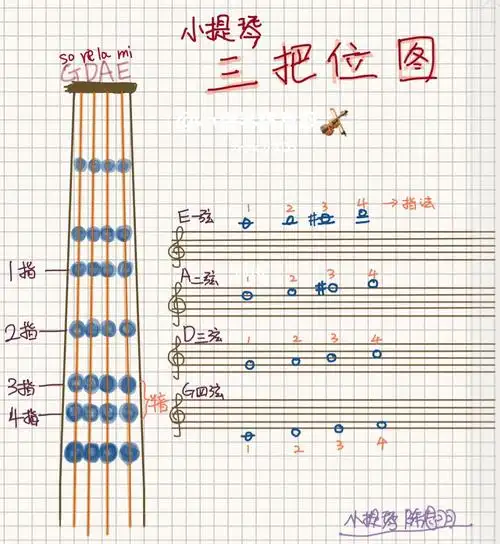 小提琴
三把位图
so re la mi
G D A E
1指
2指
3指
4指
半音
E一弦
1 2 3 4 → 指法
#
A二弦
1 2 3 4
#
D三弦
1 2 3 4
G四弦
1 2 3 4
小提琴 陈